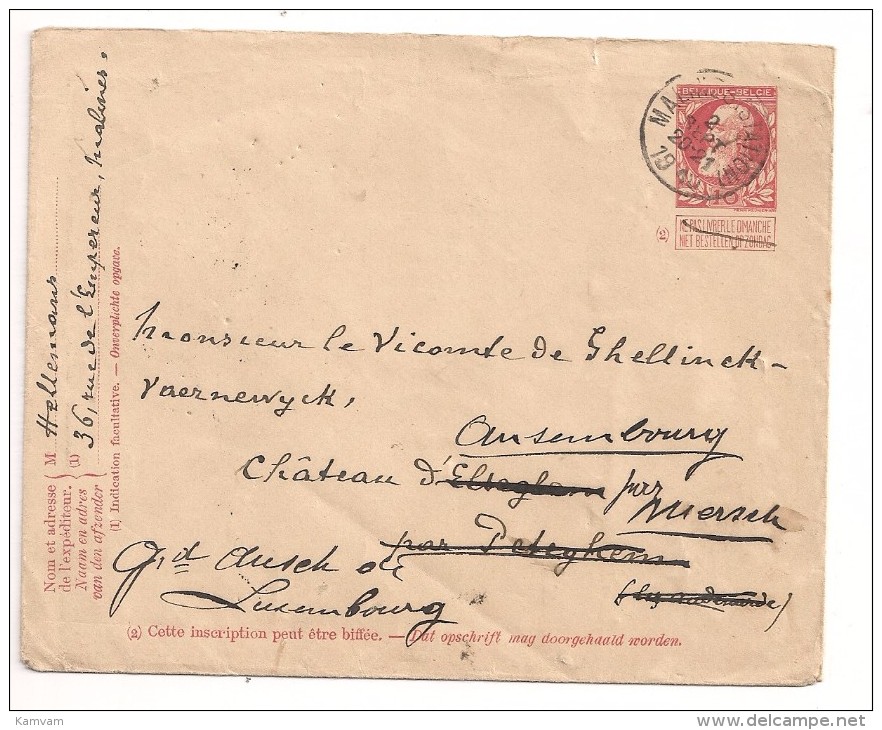 BELGIQUE-BELGIE
2
SEPT
20-21
19
10
NE PAS LIVRER LE DIMANCHE
NIET BESTELLEN OP ZONDAG
(2)
Nom et adresse
de l'expéditeur.
Naam en adres
van den afzender
M Hellemans
(1) 36, rue de l'Empereur, Malines.
(1) Indication facultative. — Onverplichte opgave.
Monsieur le Vicomte de Ghellinck-
Vaernewyck,
Ansembourg
Château d'Elseghem par
Mersch
par Peteghem
(lez Audenarde)
Gd Duché de
Luxembourg
(2) Cette inscription peut être biffée. — Dat opschrift mag doorgehaald worden.
Kamvam
delcampe.net